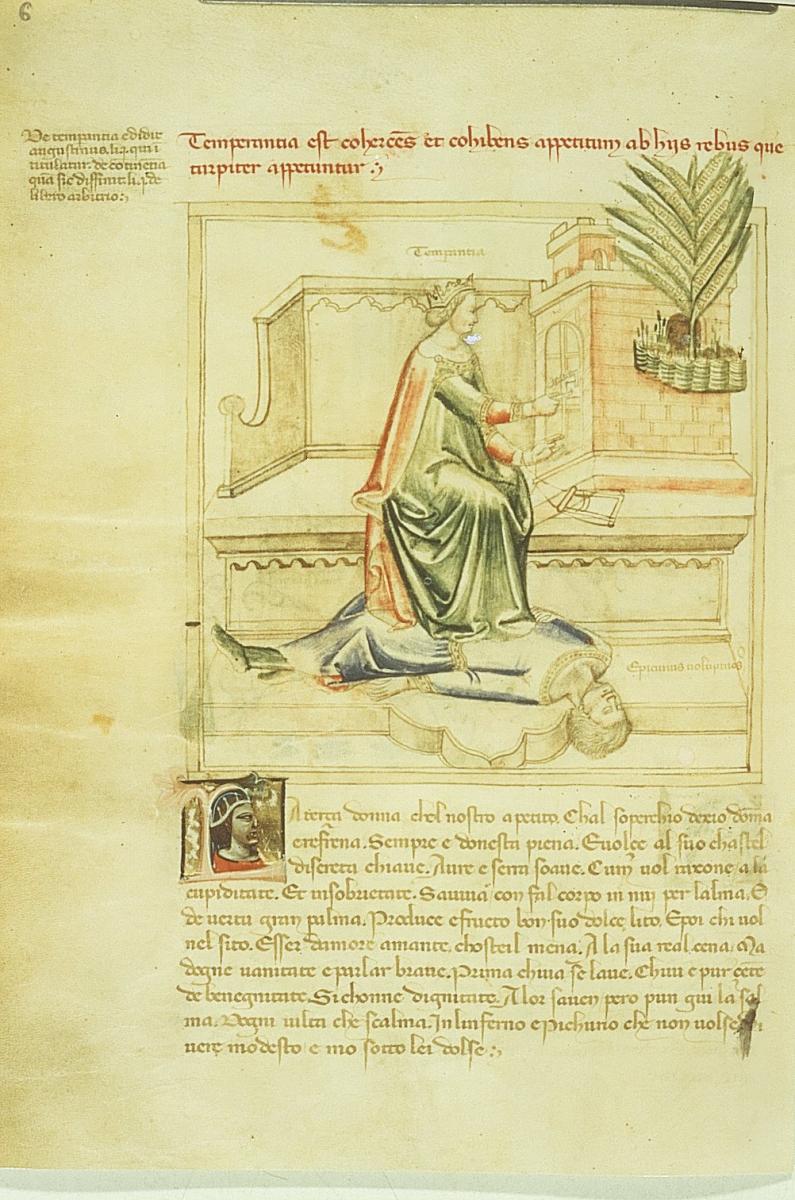 6
De temperantia edidit
augustinus. li.
titulatur. de cotinetia
qua sic diffinit. li. p. de
libero arbitrio:,
Temperantia est cohercēs et cohibens appetitum ab hijs rebus que
turpiter appetuntur:,
Tempantia
Epicurus voluptuos
A terça donna chel nostro apetito. Chal soperchio dexio doma
e refrena. Sempre e donesta piena. Evolce al suo chastel
discreta chiave. Aure e serra soave. Cum vol raxone a la
cupiditate. Et in sobrietate. Savia con fal corpo in per lalma. E
de vertu gran palma. Produce e fructo bon suo dolce lito. E poi chi vol
nel sito. Esser damore amante. chostei l mena. A la sua real cena. Ma
dogne vanitate e parlar brave. Prima chiva se lave. Chivi e pur gēte
de benegnitate. Si chonne dignitate. Alor saven pero pun qui la sal
ma. Dogni vilta che scalma. In linferno e pichurio che non volse
vere modesto e mo sotto lei dolse:,